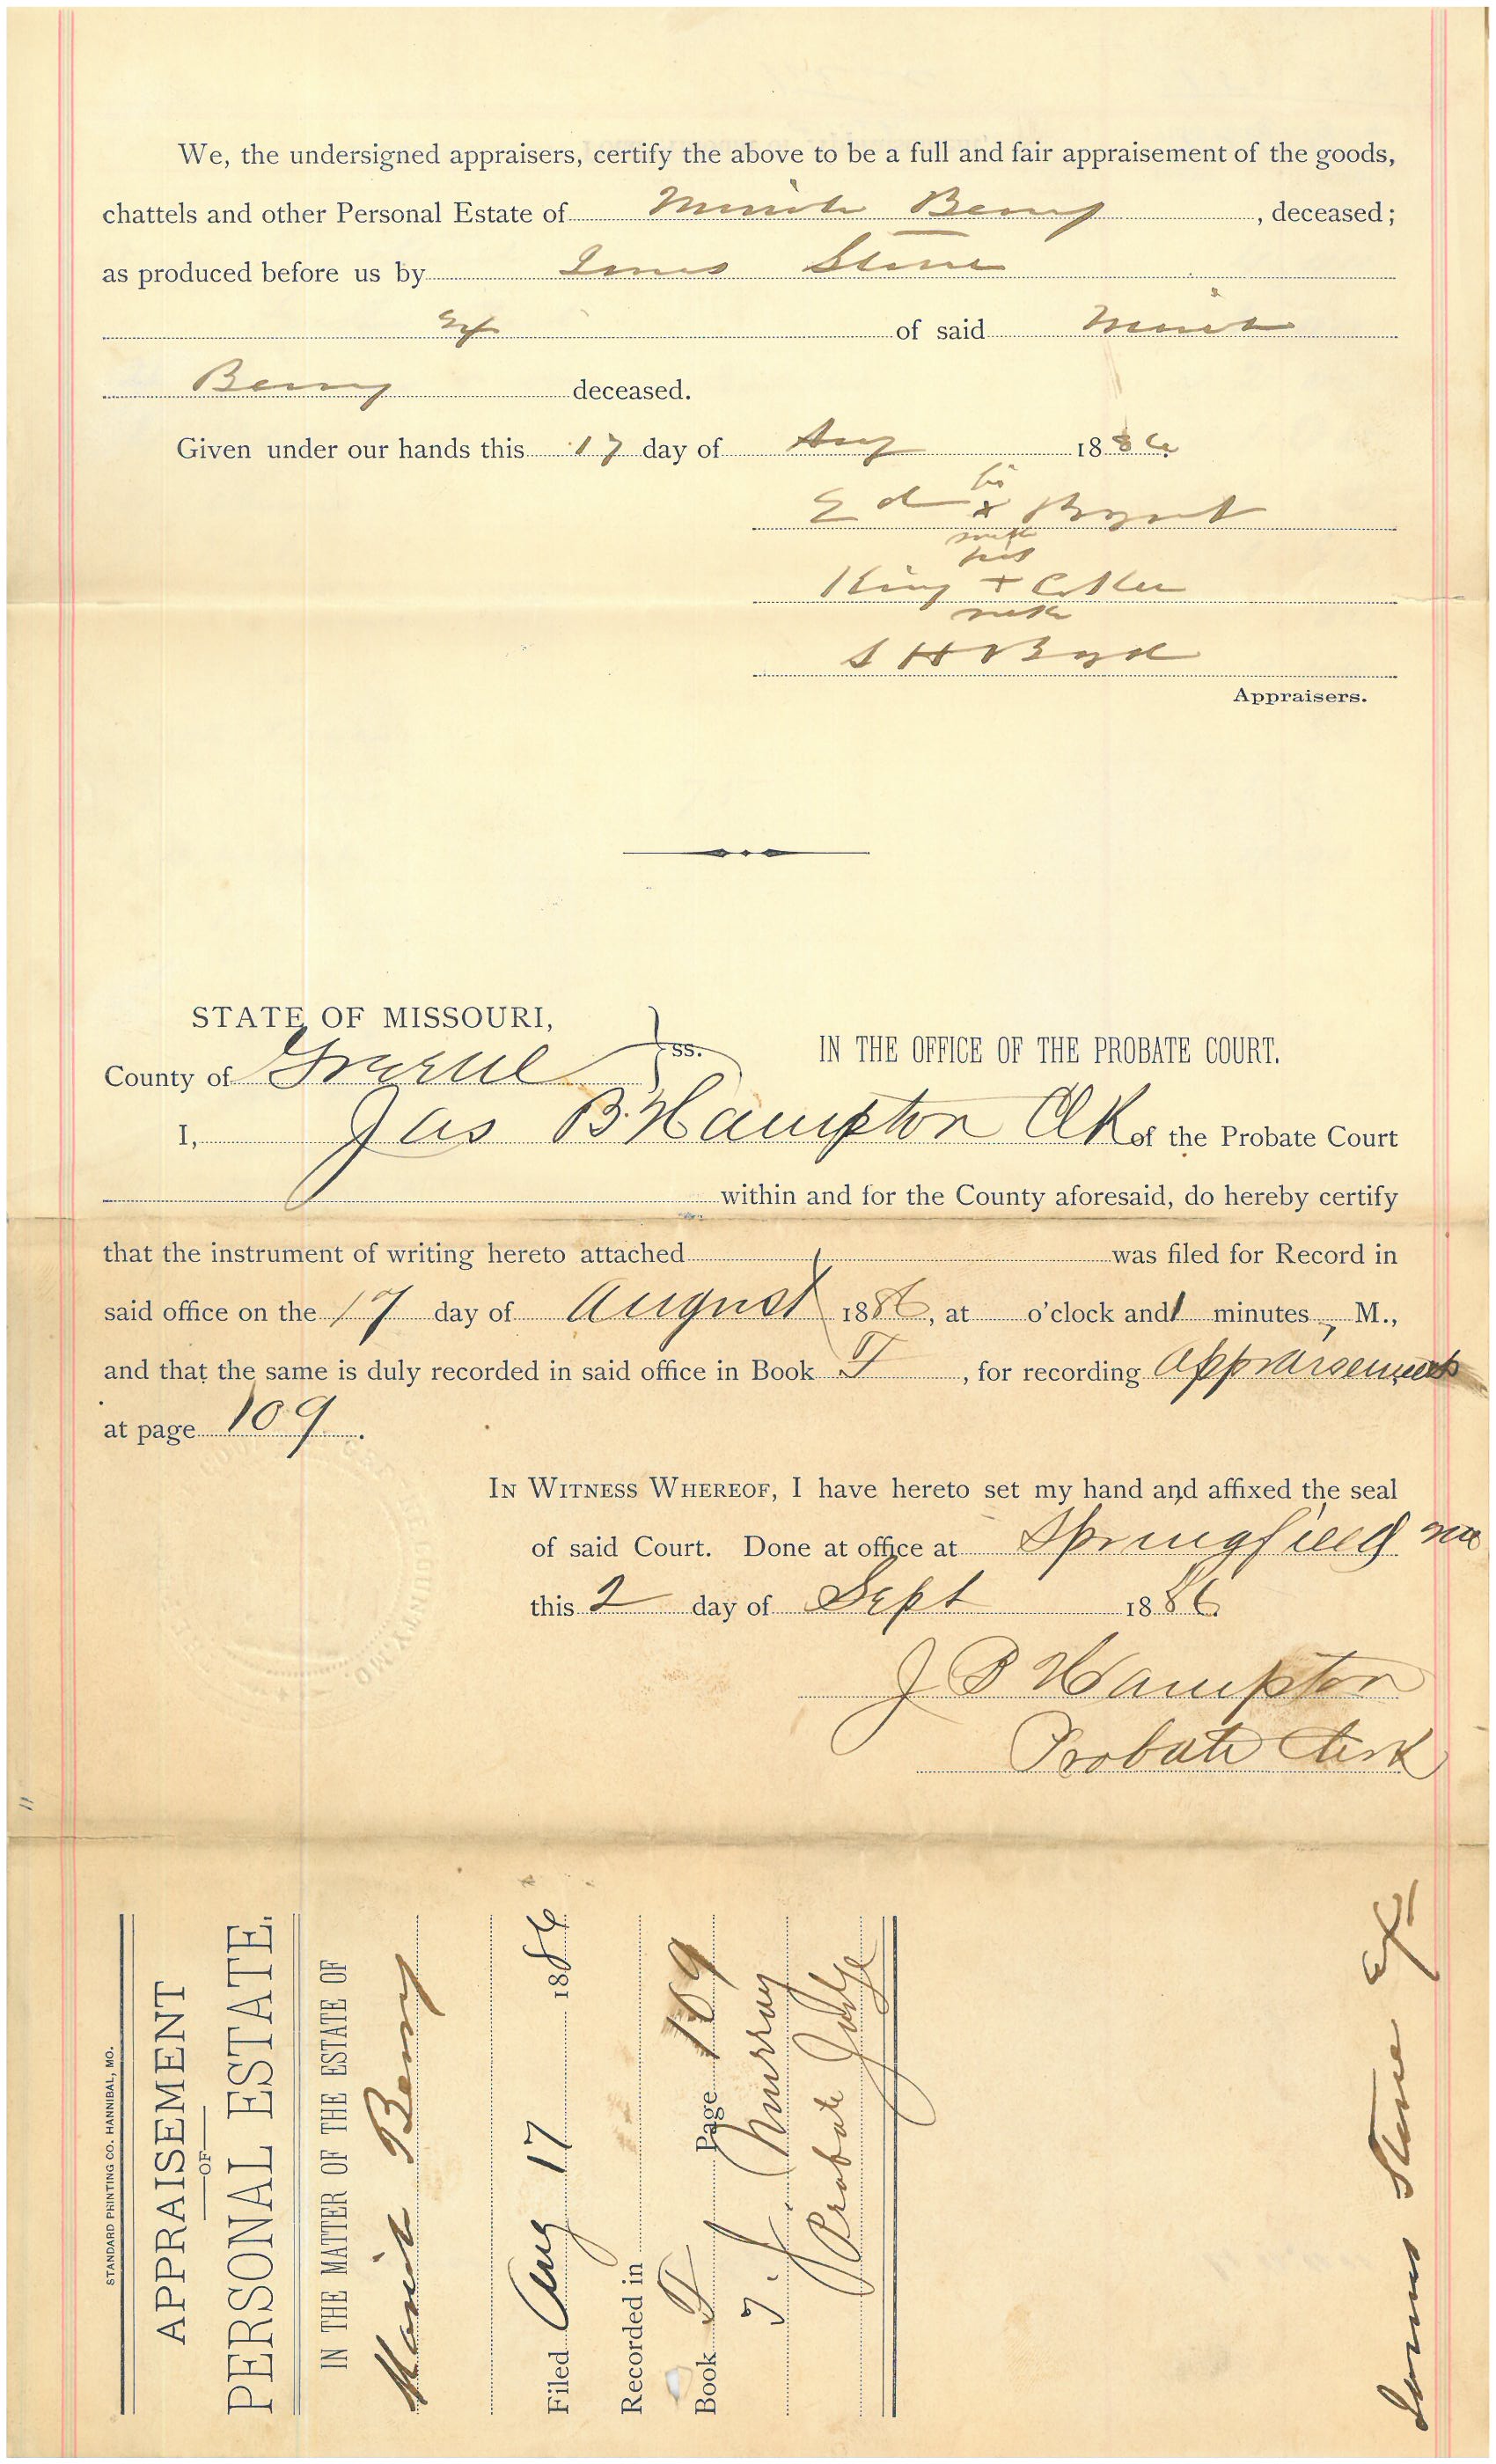 We, the undersigned appraisers, certify the above to be a full and fair appraisement of the goods,
chattels and other Personal Estate of Berry , deceased;
as produced before us by Stone
Ex of said
Berry deceased.
Given under our hands this 17 day of Aug 1886
his
Ed x Bryant
mark
his
King + Coker
mark
S H Boyd
Appraisers.
STATE OF MISSOURI,
County of Greene ss. IN THE OFFICE OF THE PROBATE COURT.
I, Jas B. Hampton Clk of the Probate Court
within and for the County aforesaid, do hereby certify
that the instrument of writing hereto attached was filed for Record in
said office on the 17 day of August 1886, at o'clock and minutes M.,
and that the same is duly recorded in said office in Book T , for recording Appraisements
at page 109 .
IN WITNESS WHEREOF, I have hereto set my hand and affixed the seal
of said Court. Done at office at Springfield Mo
this 2 day of Sept 1886
J B Hampton
Probate Clerk
STANDARD PRINTING CO. HANNIBAL, MO.
APPRAISEMENT
OF
PERSONAL ESTATE.
IN THE MATTER OF THE ESTATE OF
Berry
Filed Aug 17 1886
Recorded in
Book T Page 109
J. Murray
Probate Judge
Stone Ex